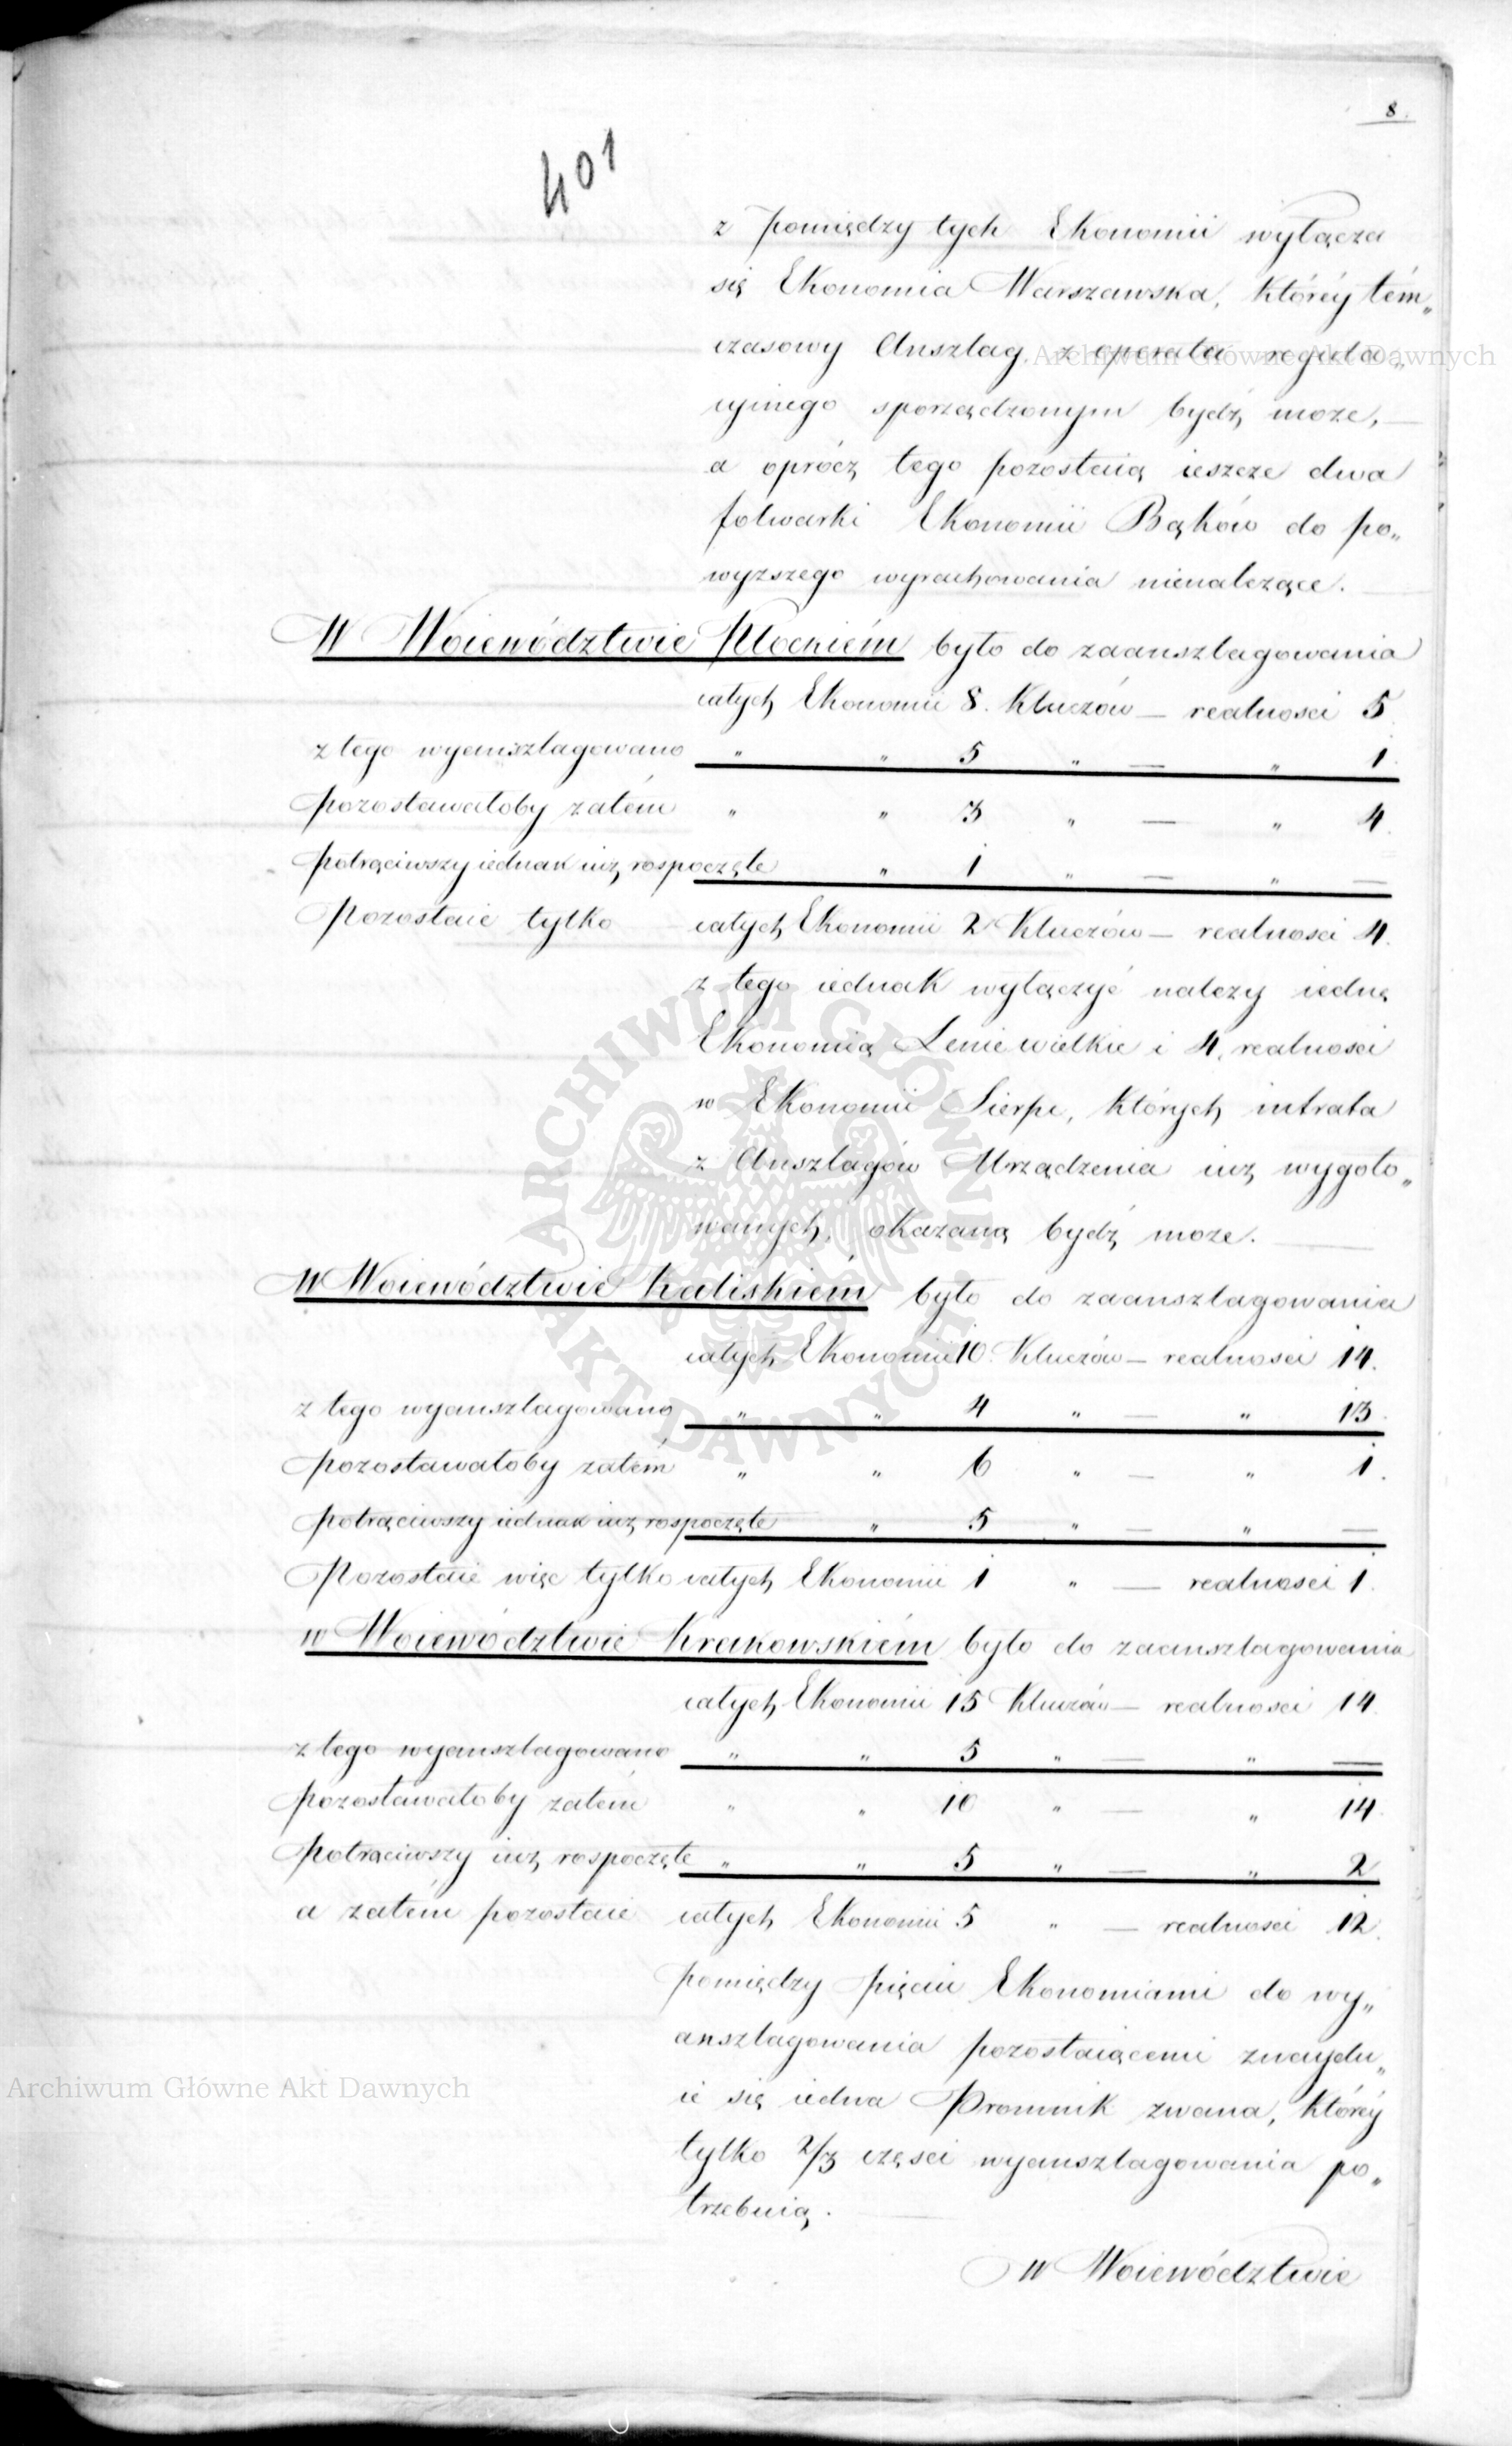 8.
401
z pomiędzy tych Ekonomii wyłącza
się Ekonomia Warszawska, któréy tém„
czasowy Anszlag, z operata regula„
cyinego sporządzonym bydź może, —
a oprócz tego pozostaią ieszcze dwa
folwarki Ekonomii Bąków do po„
wyższego wyrachowania nienależące. —
W Woiewództwie Płockiém było do zaanszlagowania
całych Ekonomii 8. Kluczów — realności 5.
z tego wyanszlagowano „ „ 5 „ — „ 1.
pozostawałoby zatém „ „ 3 „ — „ 4.
potrąciwszy iednak iuż rospoczęte „ 1 „ — „ —
Pozostaie tylko całych Ekonomii 2 Kluczów — realności 4.
z tego iednak wyłączyć należy iednę
Ekonomią Lenie wielkie i 4. realności
w Ekonomii Sierpc, których intrata
z Anszlagów Urządzenia iuż wygoto„
wanych, okazaną bydź może. —
W Woiewództwie Kaliskiém było do zaanszlagowania
całych Ekonomii 10. Kluczów — realności 14.
z tego wyanszlagowano „ „ 4 „ — „ 13.
pozostawałoby zatém „ „ 6 „ — „ 1.
potrąciwszy iednak iuż rospoczęte „ 5 „ — „ —
Pozostaie więc tylko całych Ekonomii 1 „ — realności 1.
w Woiewództwie Krakowskiém było do zaanszlagowania
całych Ekonomii 15 Kluczów — realności 14.
z tego wyanszlagowano „ „ 5 „ — „ —
pozostawałoby zatém „ „ 10 „ — „ 14.
Potraciwszy iuż rospoczęte „ „ 5 „ — „ 2
a zatém pozostaie całych Ekonomii 5 „ — realności 12.
pomiędzy pięciu Ekonomiami do wy„
anszlagowania pozostaiącemi znaydu„
ie się iedna Promnik zwana, któréy
tylko 2/3 części wyanszlagowania po„
trzebuią. —
W Woiewództwie
Archiwum Główne Akt Dawnych
Archiwum Główne Akt Dawnych
ARCHIWUM GŁÓWNE AKT DAWNYCH